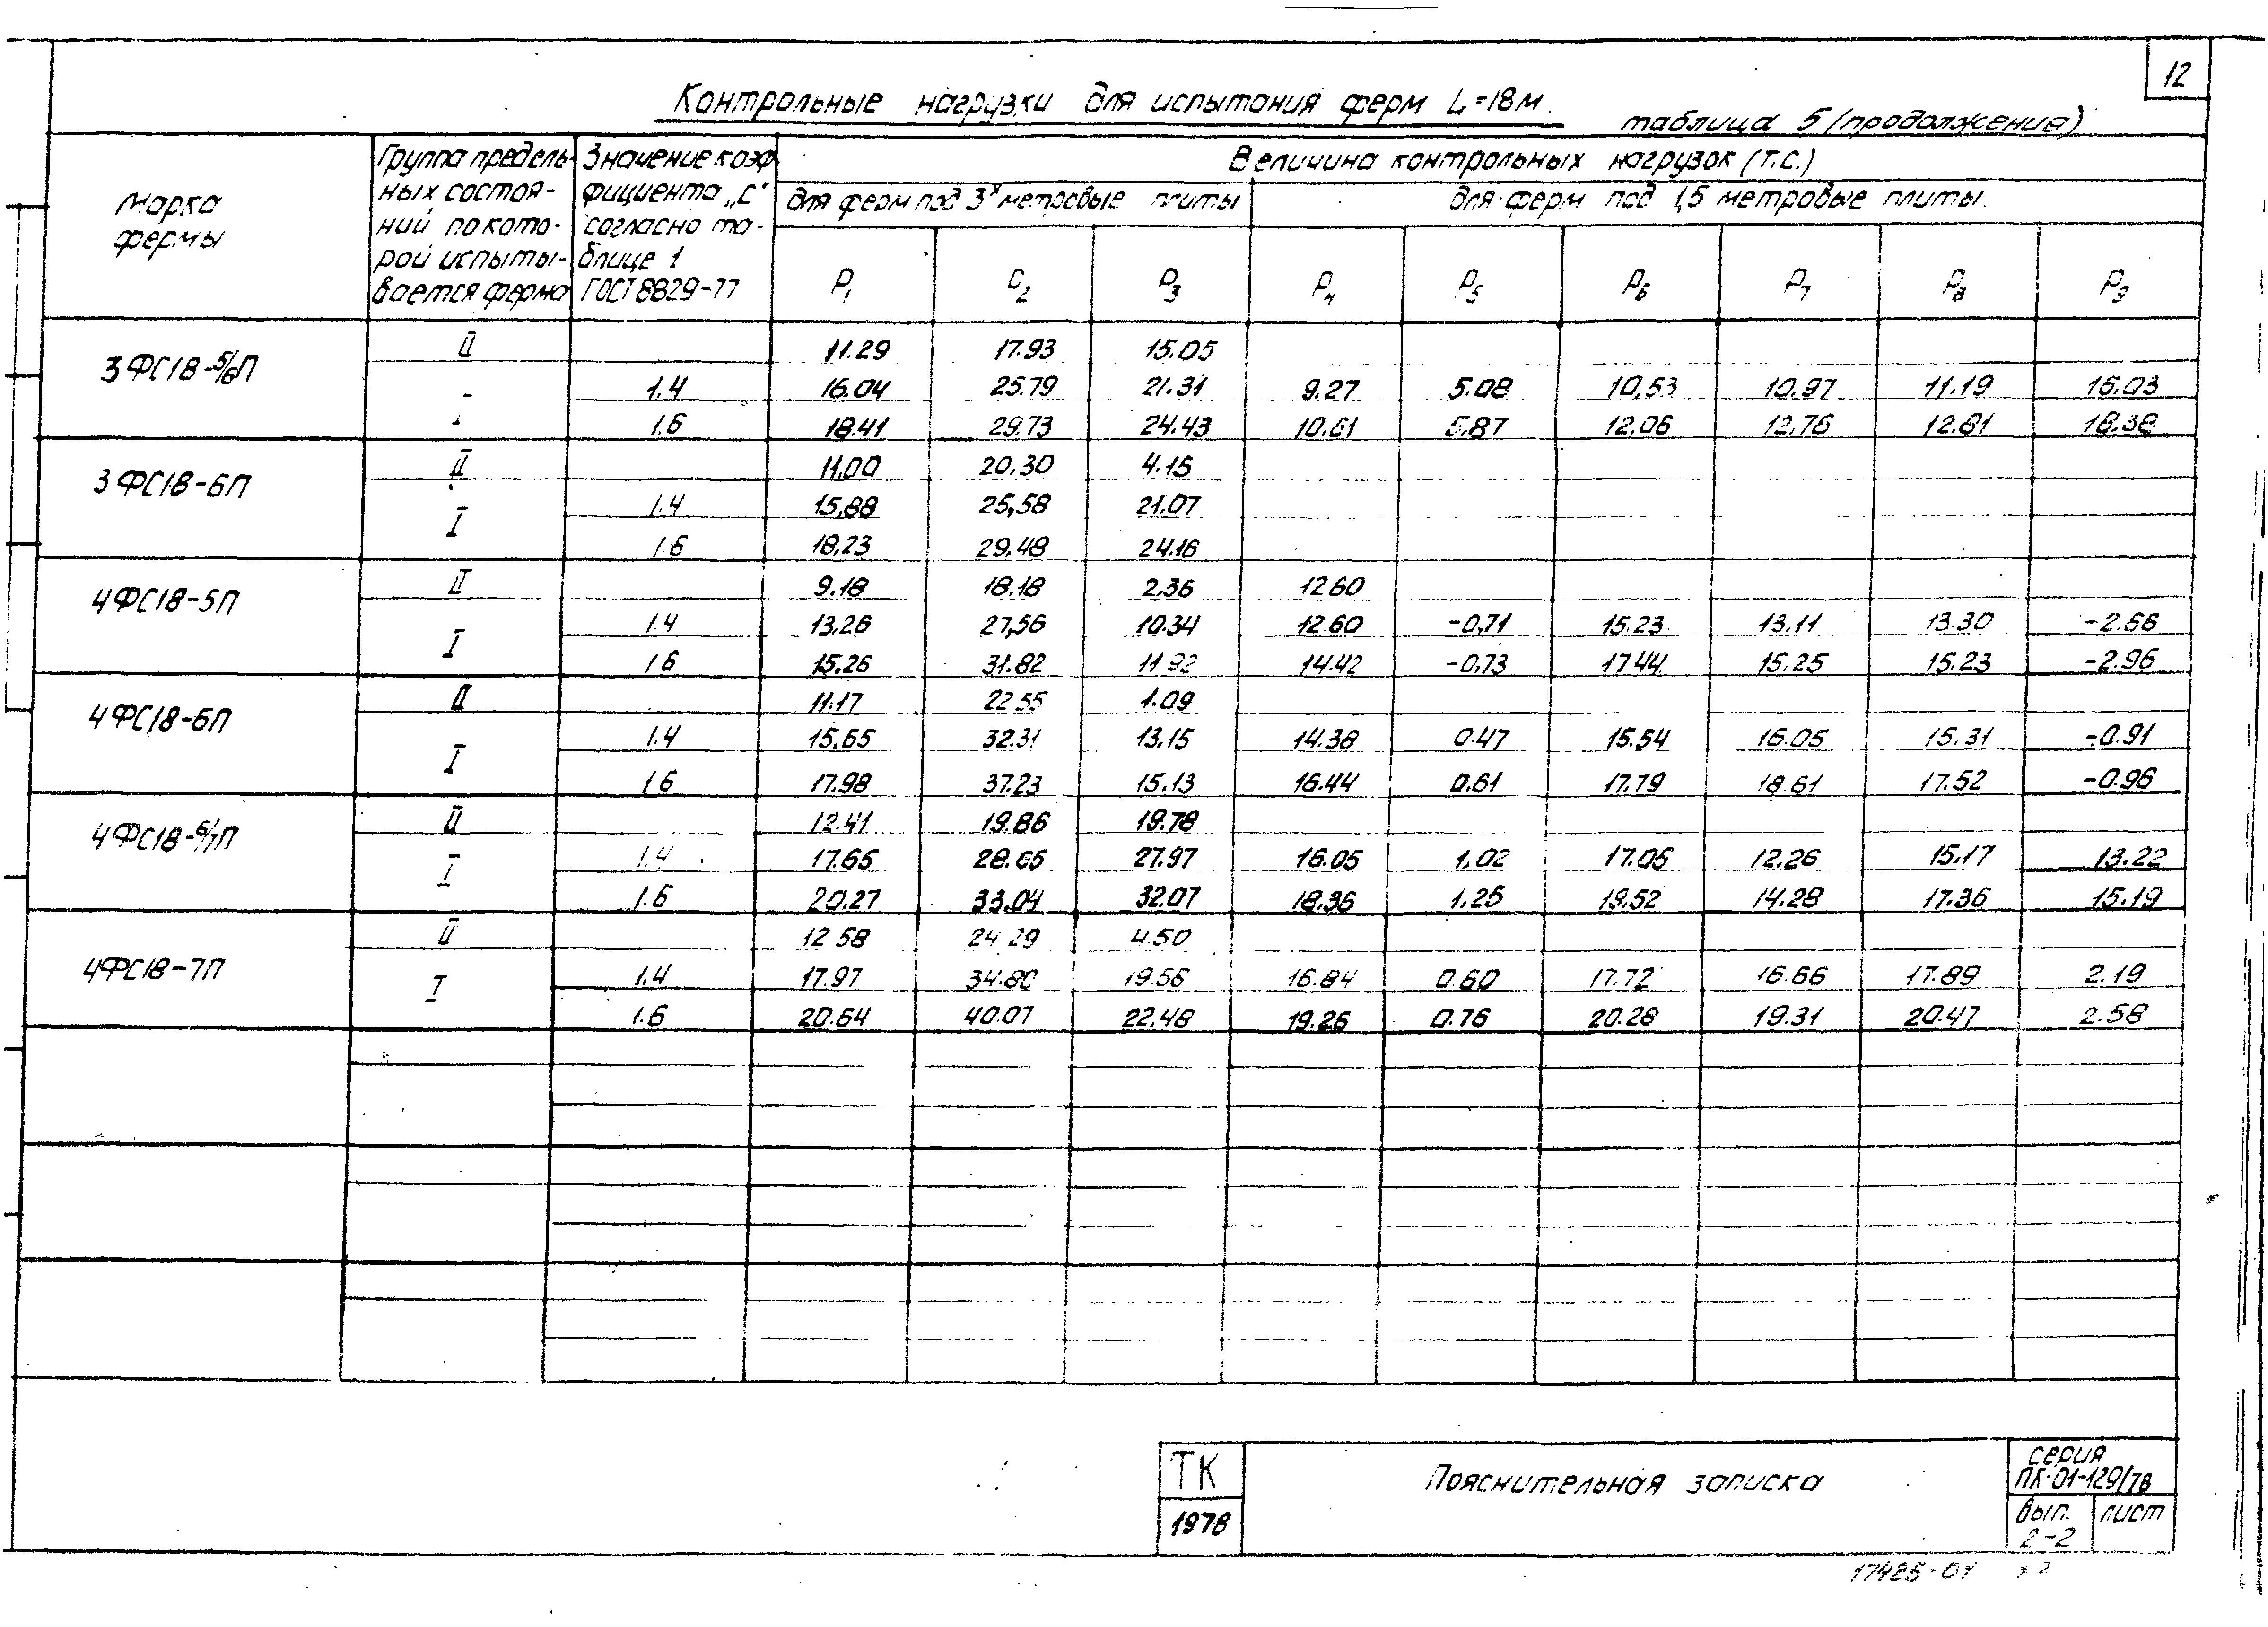 12
Контрольные нагрузки для испытания ферм L=18м.
таблица 5 (продолжение)
Марка фермы
Группа предель-
ных состоя-
ний по кото-
рой испыты-
вается ферма
Значение коэф
фициента „С"
согласно та-
блице 1
ГОСТ 8829-77
Величина контрольных нагрузок (т.с.)
для ферм под 3х метровые плиты
для ферм под 1,5 метровые плиты.
P1 P2 P3 P4 P5 P6 P7 P8 P9
3ФС18-5/6П
II 11.29 17.93 15.05
I 1.4 16.04 25.79 21.31 9.27 5.08 10,53 10.97 11.19 16.03
1.6 18.41 29.73 24.43 10.61 5,87 12.06 12.76 12.81 18.38
3ФС18-6П
II 11.00 20.30 4.15
I 1.4 15,88 25,58 21.07
1.6 18,23 29,48 24.16
4ФС18-5П
II 9.18 18.18 2,36 12.60
I 1.4 13,26 27,56 10.34 12.60 -0,71 15.23 13.11 13.30 -2.66
1.6 15,26 31.82 11.92 14.42 -0,73 17.44 15.25 15.23 -2.96
4ФС18-6П
II 11.17 22.55 1.09
I 1.4 15,65 32.31 13,15 14.38 0.47 15.54 16.05 15.31 -0.91
1.6 17.98 37.23 15.13 16.44 0.61 17.79 18.61 17.52 -0.96
4ФС18-6/7П
II 12.41 19.86 19.78
I 1.4 17.65 28.65 27.97 16.05 1,02 17.05 12.26 15.17 13.22
1.6 20.27 33.04 32.07 18.36 1.25 19.52 14.28 17.36 15.19
4ФС18-7П
II 12.58 24.29 4.50
I 1.4 17.97 34.80 19.56 16.84 0.60 17.72 16.66 17.89 2.19
1.6 20.64 40.07 22.48 19.26 0.76 20.28 19.31 20.47 2.58
ТК
1978
Пояснительная записка
серия
ПК-01-129/78
вып.
2-2
лист
17425-01